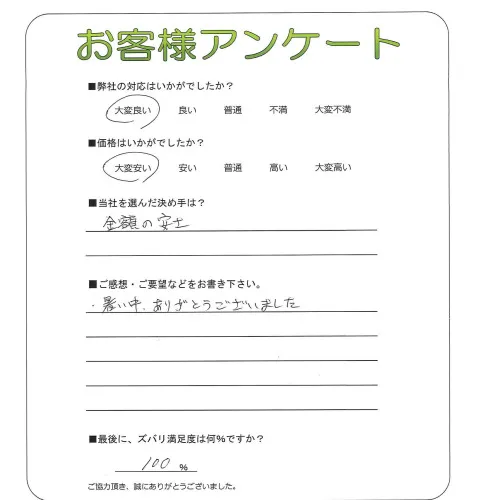 お客様アンケート
■弊社の対応はいかがでしたか？
大変良い 良い 普通 不満 大変不満
■価格はいかがでしたか？
大変安い 安い 普通 高い 大変高い
■当社を選んだ決め手は？
金額の安さ
■ご感想・ご要望などをお書き下さい。
・暑い中、ありがとうございました
■最後に、ズバリ満足度は何%ですか？
100 %
ご協力頂き、誠にありがとうございました。